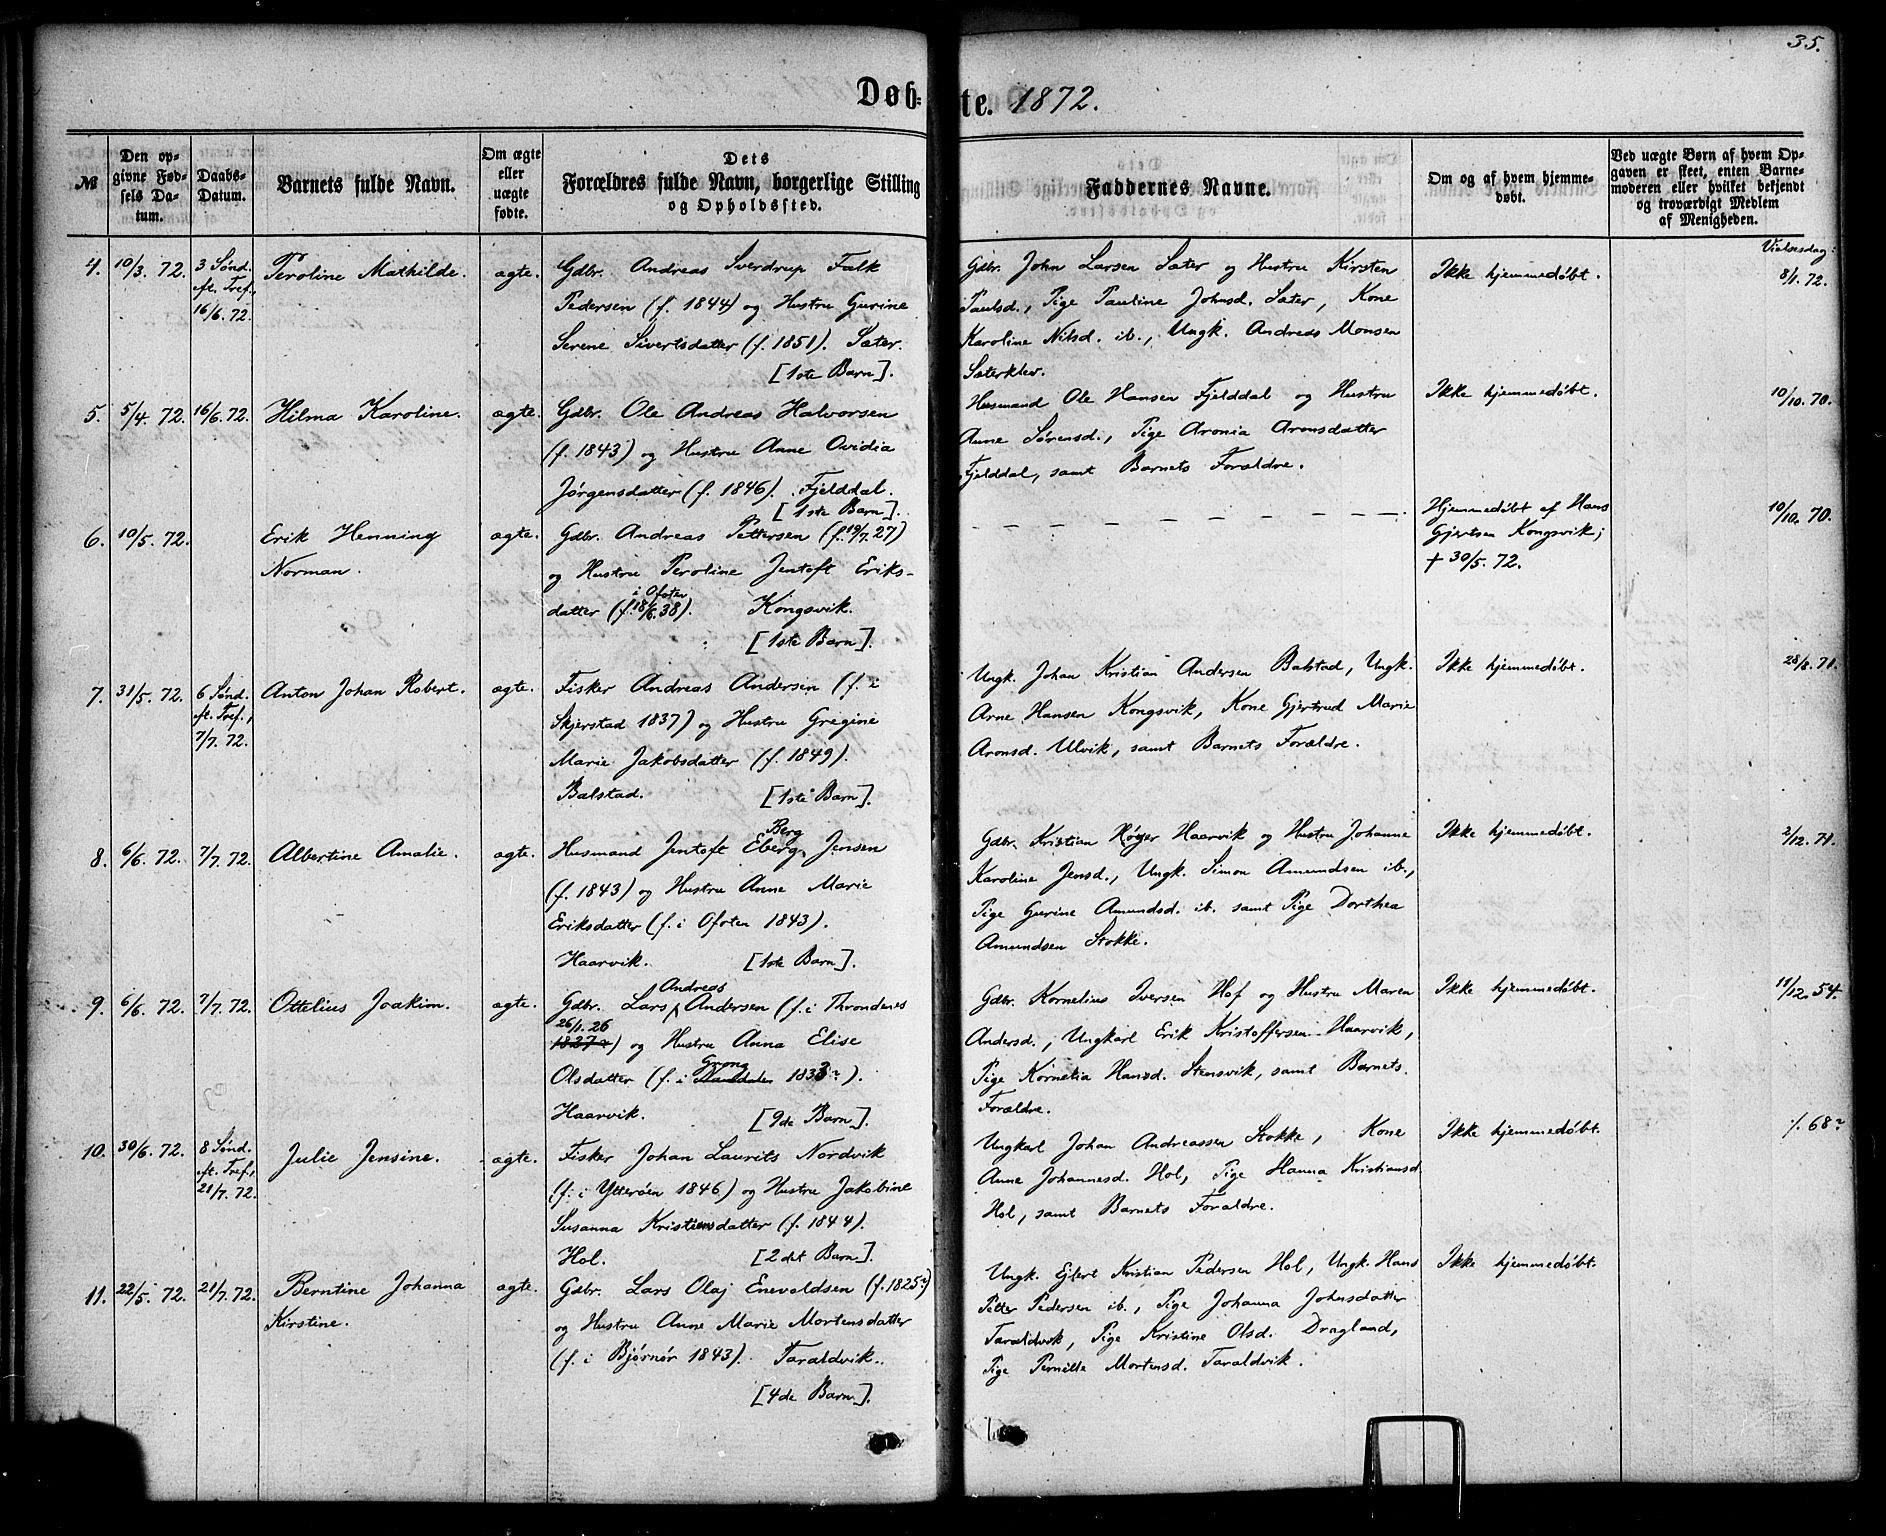 35.
Døb=
te. 1872.
№
Den op-
givne Fød-
sels Da-
tum.
Daabs-
Datum.
Barnets fulde Navn.
Om ægte
eller
uægte
fødte.
Dets
Forældres fulde Navn, borgerlige Stilling
og Opholdssted.
Faddernes Navne.
Om og af hvem hjemme-
døbt.
Ved uægte Børn af hvem Op-
gaven er skeet, enten Barne-
moderen eller hvilket bekjendt
og troværdigt Medlem
af Menigheden.
Vielsesdag:
4. 10/3. 72. 3 Sønd.
eft. Tref.,
16/6. 72.
Peroline Mathilde.
ægte.
Gdbr. Andreas Sverdrup Falk
Pedersen (f. 1844) og Hustru Gurine
Serene Sivertsdatter (f. 1851). Sæter.
[1ste Barn].
Gdbr. John Larsen Sæter og Hustru Kirsten
Paulsd., Pige Pauline Johnsd. Sæter, Kone
Karoline Nilsd. ib., Ungk. Andreas Monsen
Sæterklev.
Ikke hjemmedøbt.
8/1. 72.
5. 5/4. 72. 16/6. 72. Hilma Karoline.
ægte.
Gdbr. Ole Andreas Halvorsen
(f. 1843) og Hustru Anne Ovidia
Jørgensdatter (f. 1846). Fjelddal.
[1ste Barn].
Husmand Ole Hansen Fjelddal og Hustru
Anne Sørensd., Pige Aronia Aronsdatter
Fjelddal, samt Barnets Forældre.
Ikke hjemmedøbt.
10/10. 70.
6. 10/5. 72.
Erik Henning
Norman.
ægte.
Gdbr. Andreas Pettersen (f. 19/7. 27)
og Hustru Peroline Jentoft Eriks-
i Ofoten
datter (f. 18/6. 38). Kongsvik.
[1ste Barn].
— — — — — — — — — —
Hjemmedøbt af Hans
Gjertsen Kongsvik;
† 30/5. 72.
10/10. 70.
7. 31/5. 72. 6 Sønd.
eft. Tref.,
7/7. 72.
Anton Johan Robert.
ægte.
Fisker Andreas Andersen (f. i
Skjerstad 1837) og Hustru Gregine
Marie Jakobsdatter (f. 1849).
Balstad. [1ste Barn].
Ungk. Johan Kristian Andersen Balstad, Ungk.
Arne Hansen Kongsvik, Kone Gjertrud Marie
Aronsd. Ulvik, samt Barnets Forældre.
Ikke hjemmedøbt.
28/8. 71.
8. 6/6. 72. 7/7. 72. Albertine Amalie.
ægte.
Berg
Husmand Jentoft Eberg Jensen
(f. 1843) og Hustru Anne Marie
Eriksdatter (f. i Ofoten 1843).
Haarvik. [1ste Barn].
Gdbr. Kristian Høyer Haarvik og Hustru Johanne
Karoline Jensd., Ungk. Simon Amundsen ib.,
Pige Gurine Amundsd. ib. samt Pige Dorthea
Amundsen Stokke.
Ikke hjemmedøbt.
2/12. 71.
9. 6/6. 72. 7/7. 72. Ottelius Joakim.
ægte.
Andreas
Gdbr. Lars Andersen (f. i Throndenes
26/1. 26
1827?) og Hustru Anna Elise
Grong
Olsdatter (f. i Namdalen 1833?).
Haarvik. [9de Barn].
Gdbr. Kornelius Iversen Hof og Hustru Maren
Andersd., Ungkarl Erik Kristoffersen Haarvik,
Pige Kornelia Hansd. Stensvik, samt Barnets
Forældre.
Ikke hjemmedøbt.
11/12. 54.
10. 30/6. 72. 8 Sønd.
eft. Tref.,
21/7. 72.
Julie Jensine.
ægte.
Fisker Johan Laurits Nordvik
(f. i Ytterøen 1846) og Hustru Jakobine
Susanna Kristiansdatter (f. 1844).
Hol. [2det Barn].
Ungkarl Johan Andreassen Stokke, Kone
Anne Johannesd. Hol, Pige Hanna Kristiansd.
Hol, samt Barnets Forældre.
Ikke hjemmedøbt.
/. 68?
11. 22/5. 72. 21/7. 72. Berntine Johanna
Kirstine.
ægte.
Gdbr. Lars Olaj Enevoldsen (f. 1825?)
og Hustru Anne Marie Mortensdatter
(f. i Bjørnør 1843). Taraldvik.
[4de Barn].
Ungk. Ejlert Kristian Pedersen Hol, Ungk. Hans
Petter Pedersen ib., Pige Johanna Johnsdatter
Taraldvik, Pige Kristine Olsd. Dragland,
Pige Pernille Mortensd. Taraldvik.
Ikke hjemmedøbt.